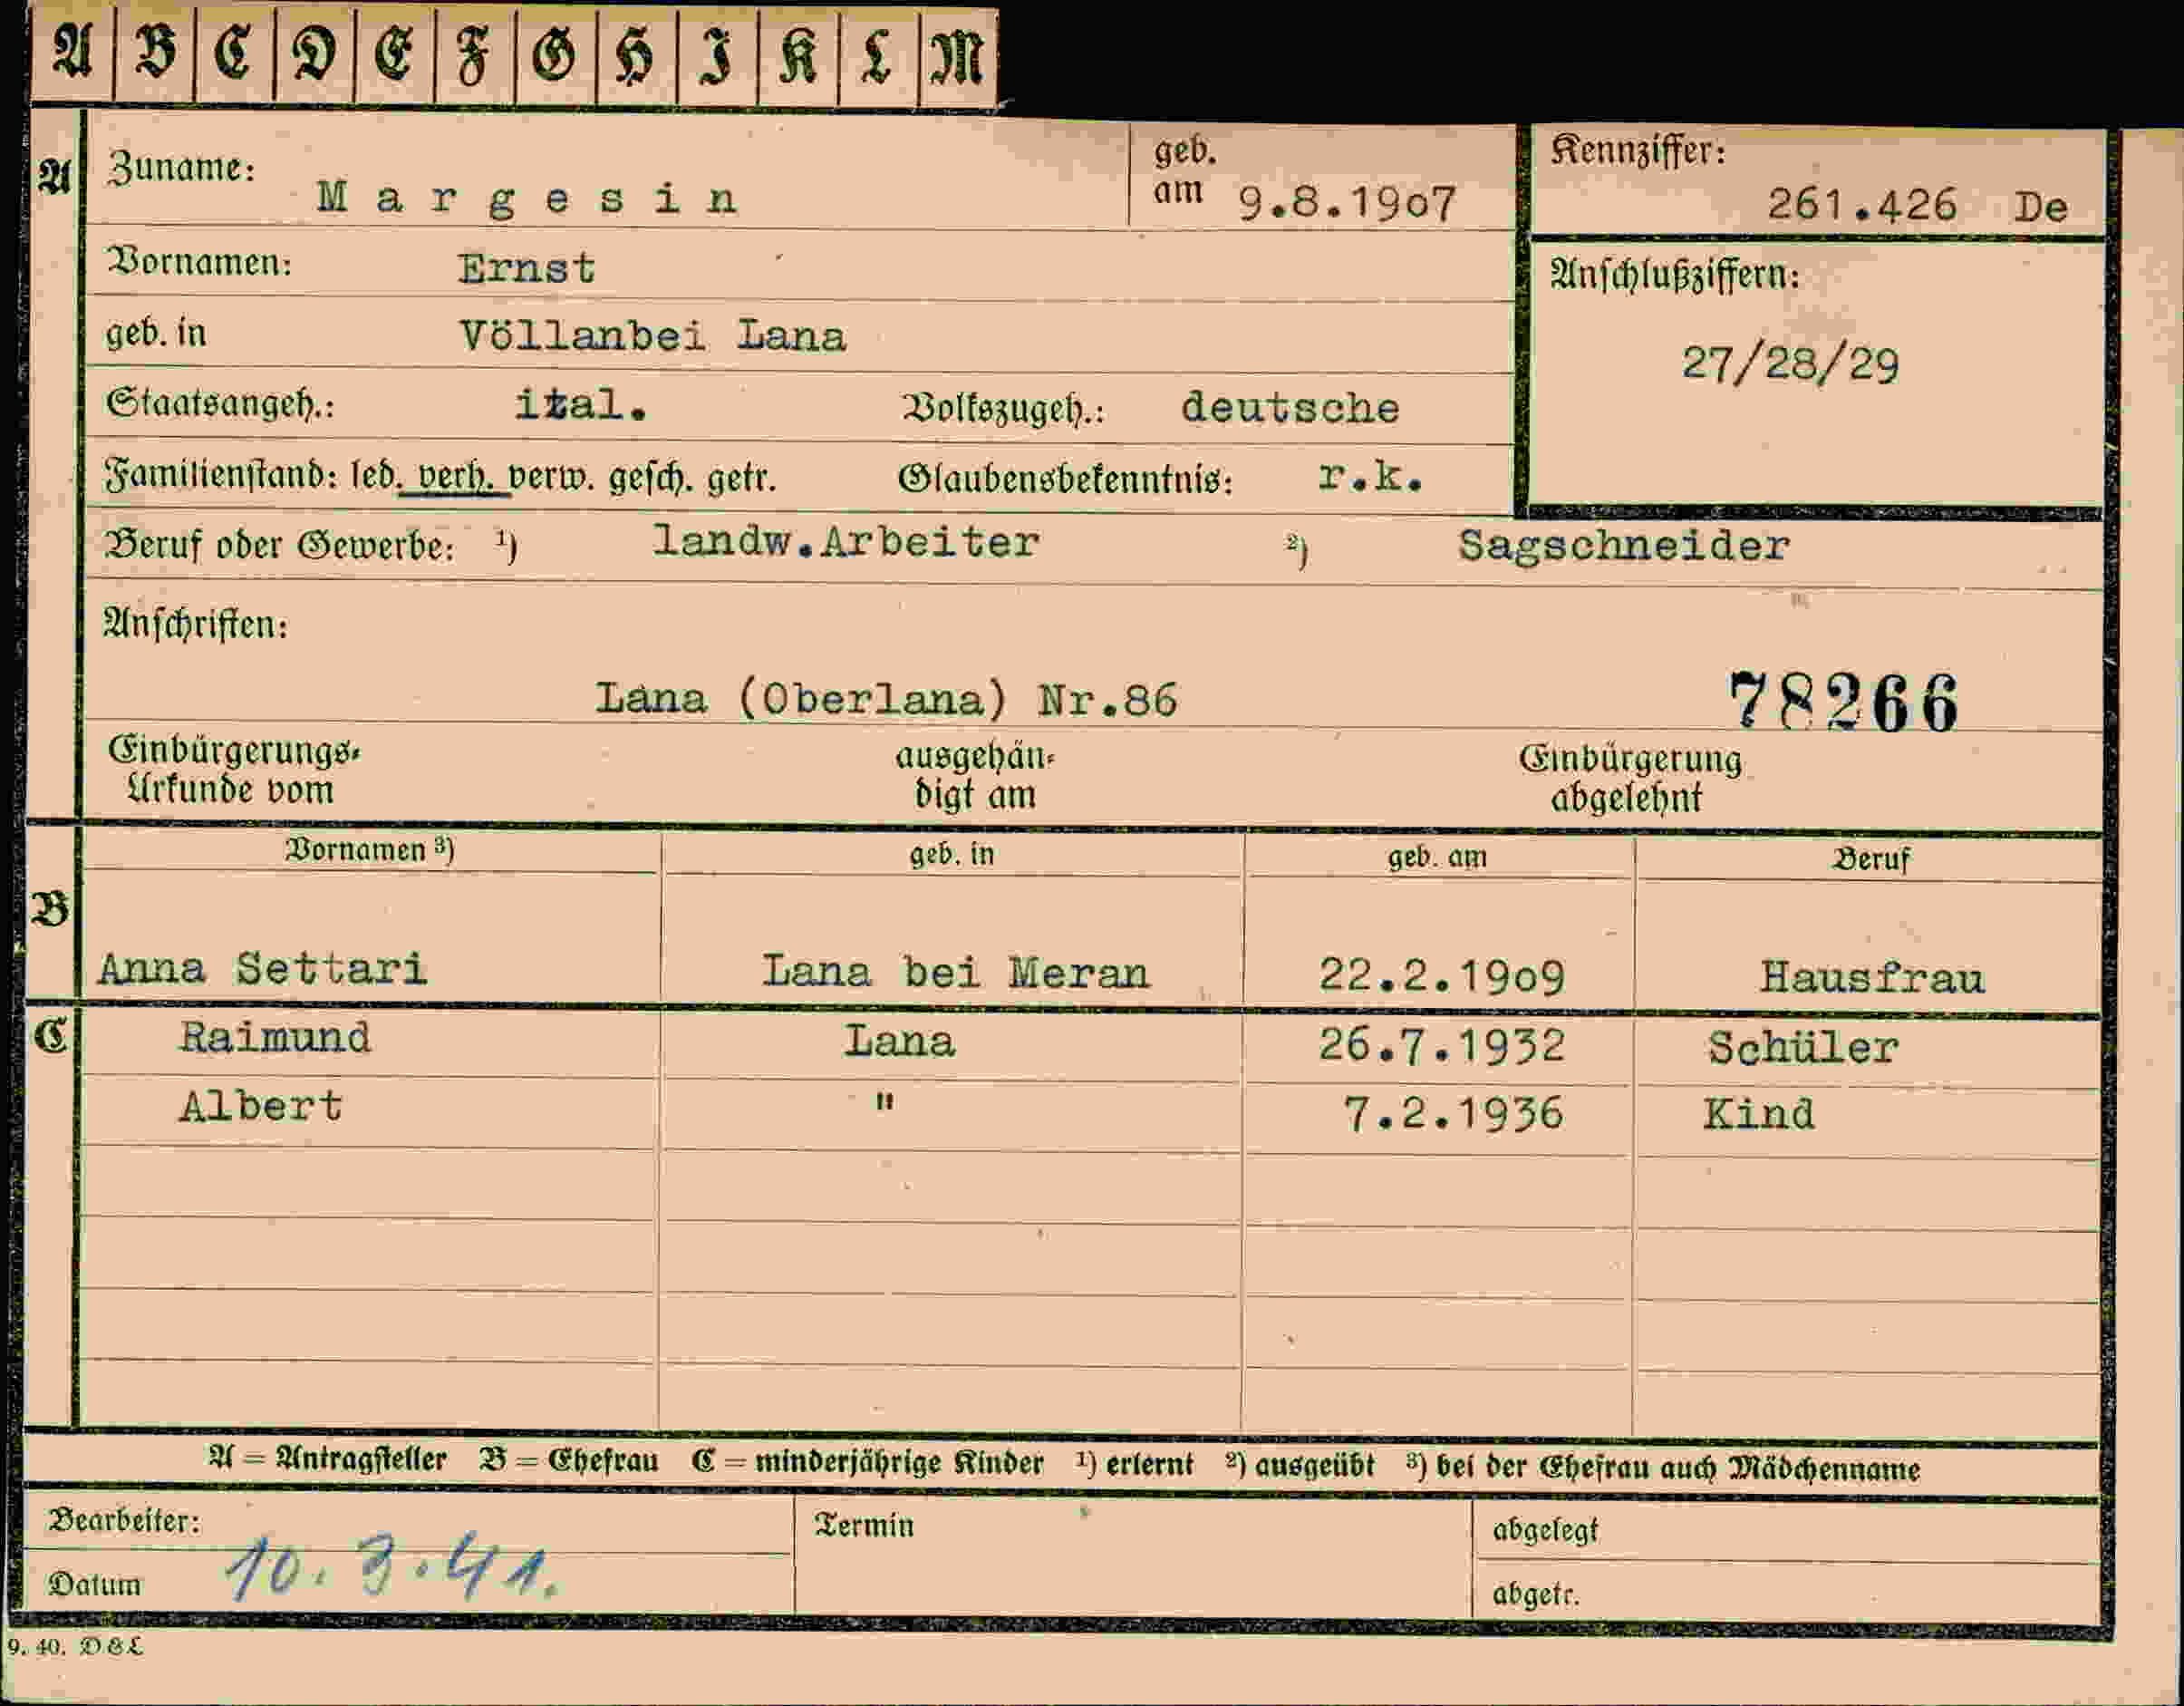 A B C D E F G H I K L M
A Zuname: Margesin geb. am 9.8.1907 Kennziffer: 261.426 De
Vornamen: Ernst Anschlußziffern:
geb. in Völlanbei Lana 27/28/29
Staatsangeh.: ital. Volkszugeh.: deutsche
Familienstand: led. verh. verw. gesch. getr. Glaubensbekenntnis: r.k.
Beruf oder Gewerbe: ¹) landw.Arbeiter ²) Sagschneider
Anschriften:
Lana (Oberlana) Nr.86 78266
Einbürgerungs- ausgehän- Einbürgerung
Urkunde vom digt am abgelehnt
Vornamen ³) geb. in geb. am Beruf
B
Anna Settari Lana bei Meran 22.2.1909 Hausfrau
C Raimund Lana 26.7.1932 Schüler
Albert " 7.2.1936 Kind
A = Antragsteller B = Ehefrau C = minderjährige Kinder ¹) erlernt ²) ausgeübt ³) bei der Ehefrau auch Mädchenname
Bearbeiter: Termin abgelegt
Datum 10.3.41. abgetr.
9. 40. D & L